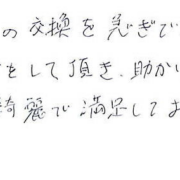 の交換を急ぎで
をして頂き、助かい
綺麗で満足してお